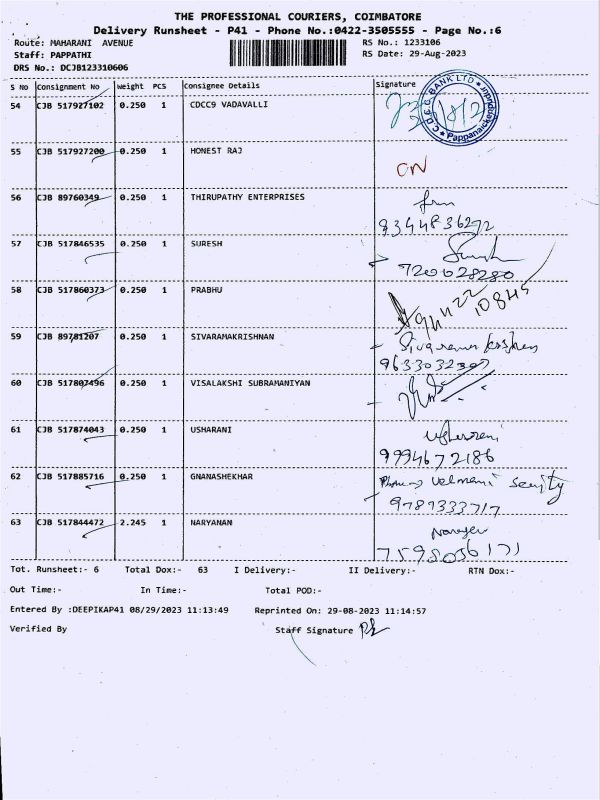 THE PROFESSIONAL COURIERS, COIMBATORE
Delivery Runsheet - P41 - Phone No.:0422-3505555 - Page No.:6
Route: MAHARANI AVENUE
RS No.: 1233106
Staff: PAPPATHI
RS Date: 29-Aug-2023
DRS No.: DCJB123310606
S No Consignment No Weight PCS Consignee Details Signature
54 CJB 517927102 0.250 1 CDCC9 VADAVALLI
BANK LTD
55 CJB 517927200 0.250 1 HONEST RAJ
ON
56 CJB 89760349 0.250 1 THIRUPATHY ENTERPRISES
9344836272
57 CJB 517846535 0.250 1 SURESH
720028280
58 CJB 517860373 0.250 1 PRABHU
10845
59 CJB 89781207 0.250 1 SIVARAMAKRISHNAN
60 CJB 517807496 0.250 1 VISALAKSHI SUBRAMANIYAN
61 CJB 517874043 0.250 1 USHARANI
9994672186
62 CJB 517885716 0.250 1 GNANASHEKHAR
Velmani
9789333717
63 CJB 517844472 2.245 1 NARYANAN
7598036171
Tot. Runsheet:- 6 Total Dox:- 63 I Delivery:- II Delivery:- RTN Dox:-
Out Time:- In Time:- Total POD:-
Entered By :DEEPIKAP41 08/29/2023 11:13:49 Reprinted On: 29-08-2023 11:14:57
Verified By Staff Signature